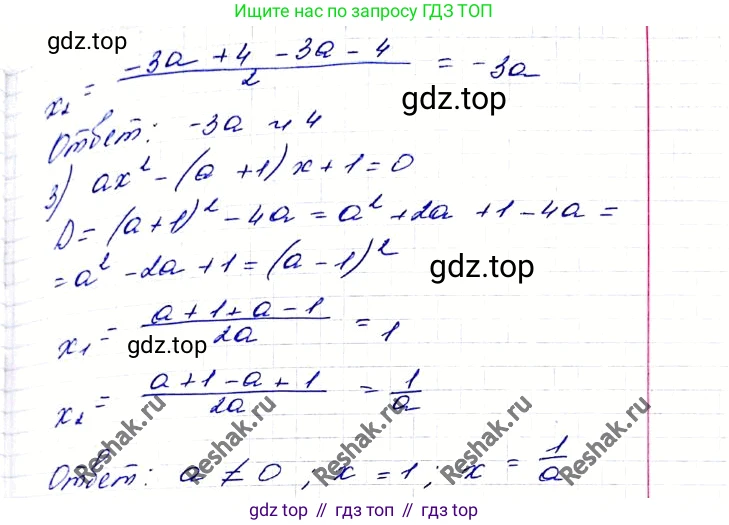 Ищите нас по запросу ГДЗ ТОП
gdz.top
x₂ = (-3a + 4 - 3a - 4)/2 = -3a
gdz.top
Ответ: -3a и 4
3) ax² - (a + 1)x + 1 = 0
D = (a+1)² - 4a = a² + 2a + 1 - 4a =
= a² - 2a + 1 = (a - 1)²
gdz.top
x₁ = (a + 1 + a - 1)/2a = 1
gdz.top
x₂ = (a + 1 - a + 1)/2a = 1/a
Reshak.ru
Reshak.ru
Reshak.ru
Reshak.ru
Ответ: a ≠ 0 ; x = 1 ; x = 1/a
gdz top // гдз топ // gdz.top // гдз.топ